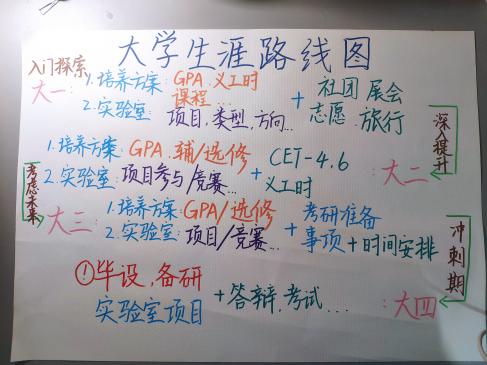 大学生涯路线图
入门探索
大一: 1.培养方案: GPA、义工时
课程...
2.实验室: 项目,类型,方向...
+ 社团 尾会
志愿 旅行
深入提升
1.培养方案: GPA、辅/选修
2.实验室: 项目参与/竞赛...
+ CET-4.6
义工时
:大二
考虑未来
大三: 1.培养方案: GPA/选修
2.实验室: 项目/竞赛...
+ 考研准备
事项+时间安排
冲刺期
①毕设,备研
实验室项目
+ 答辩,考试...
:大四